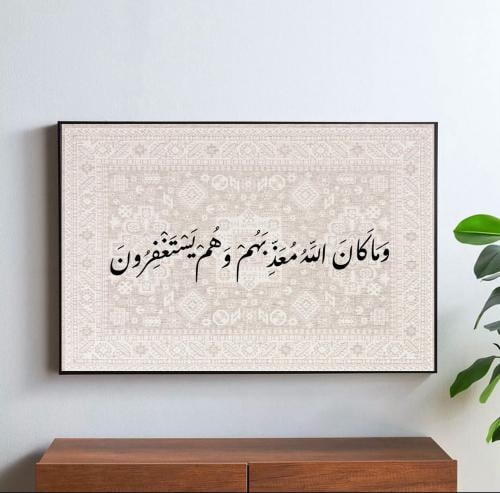 وَمَا كَانَ اللَّهُ مُعَذِّبَهُمْ وَهُمْ يَسْتَغْفِرُونَ